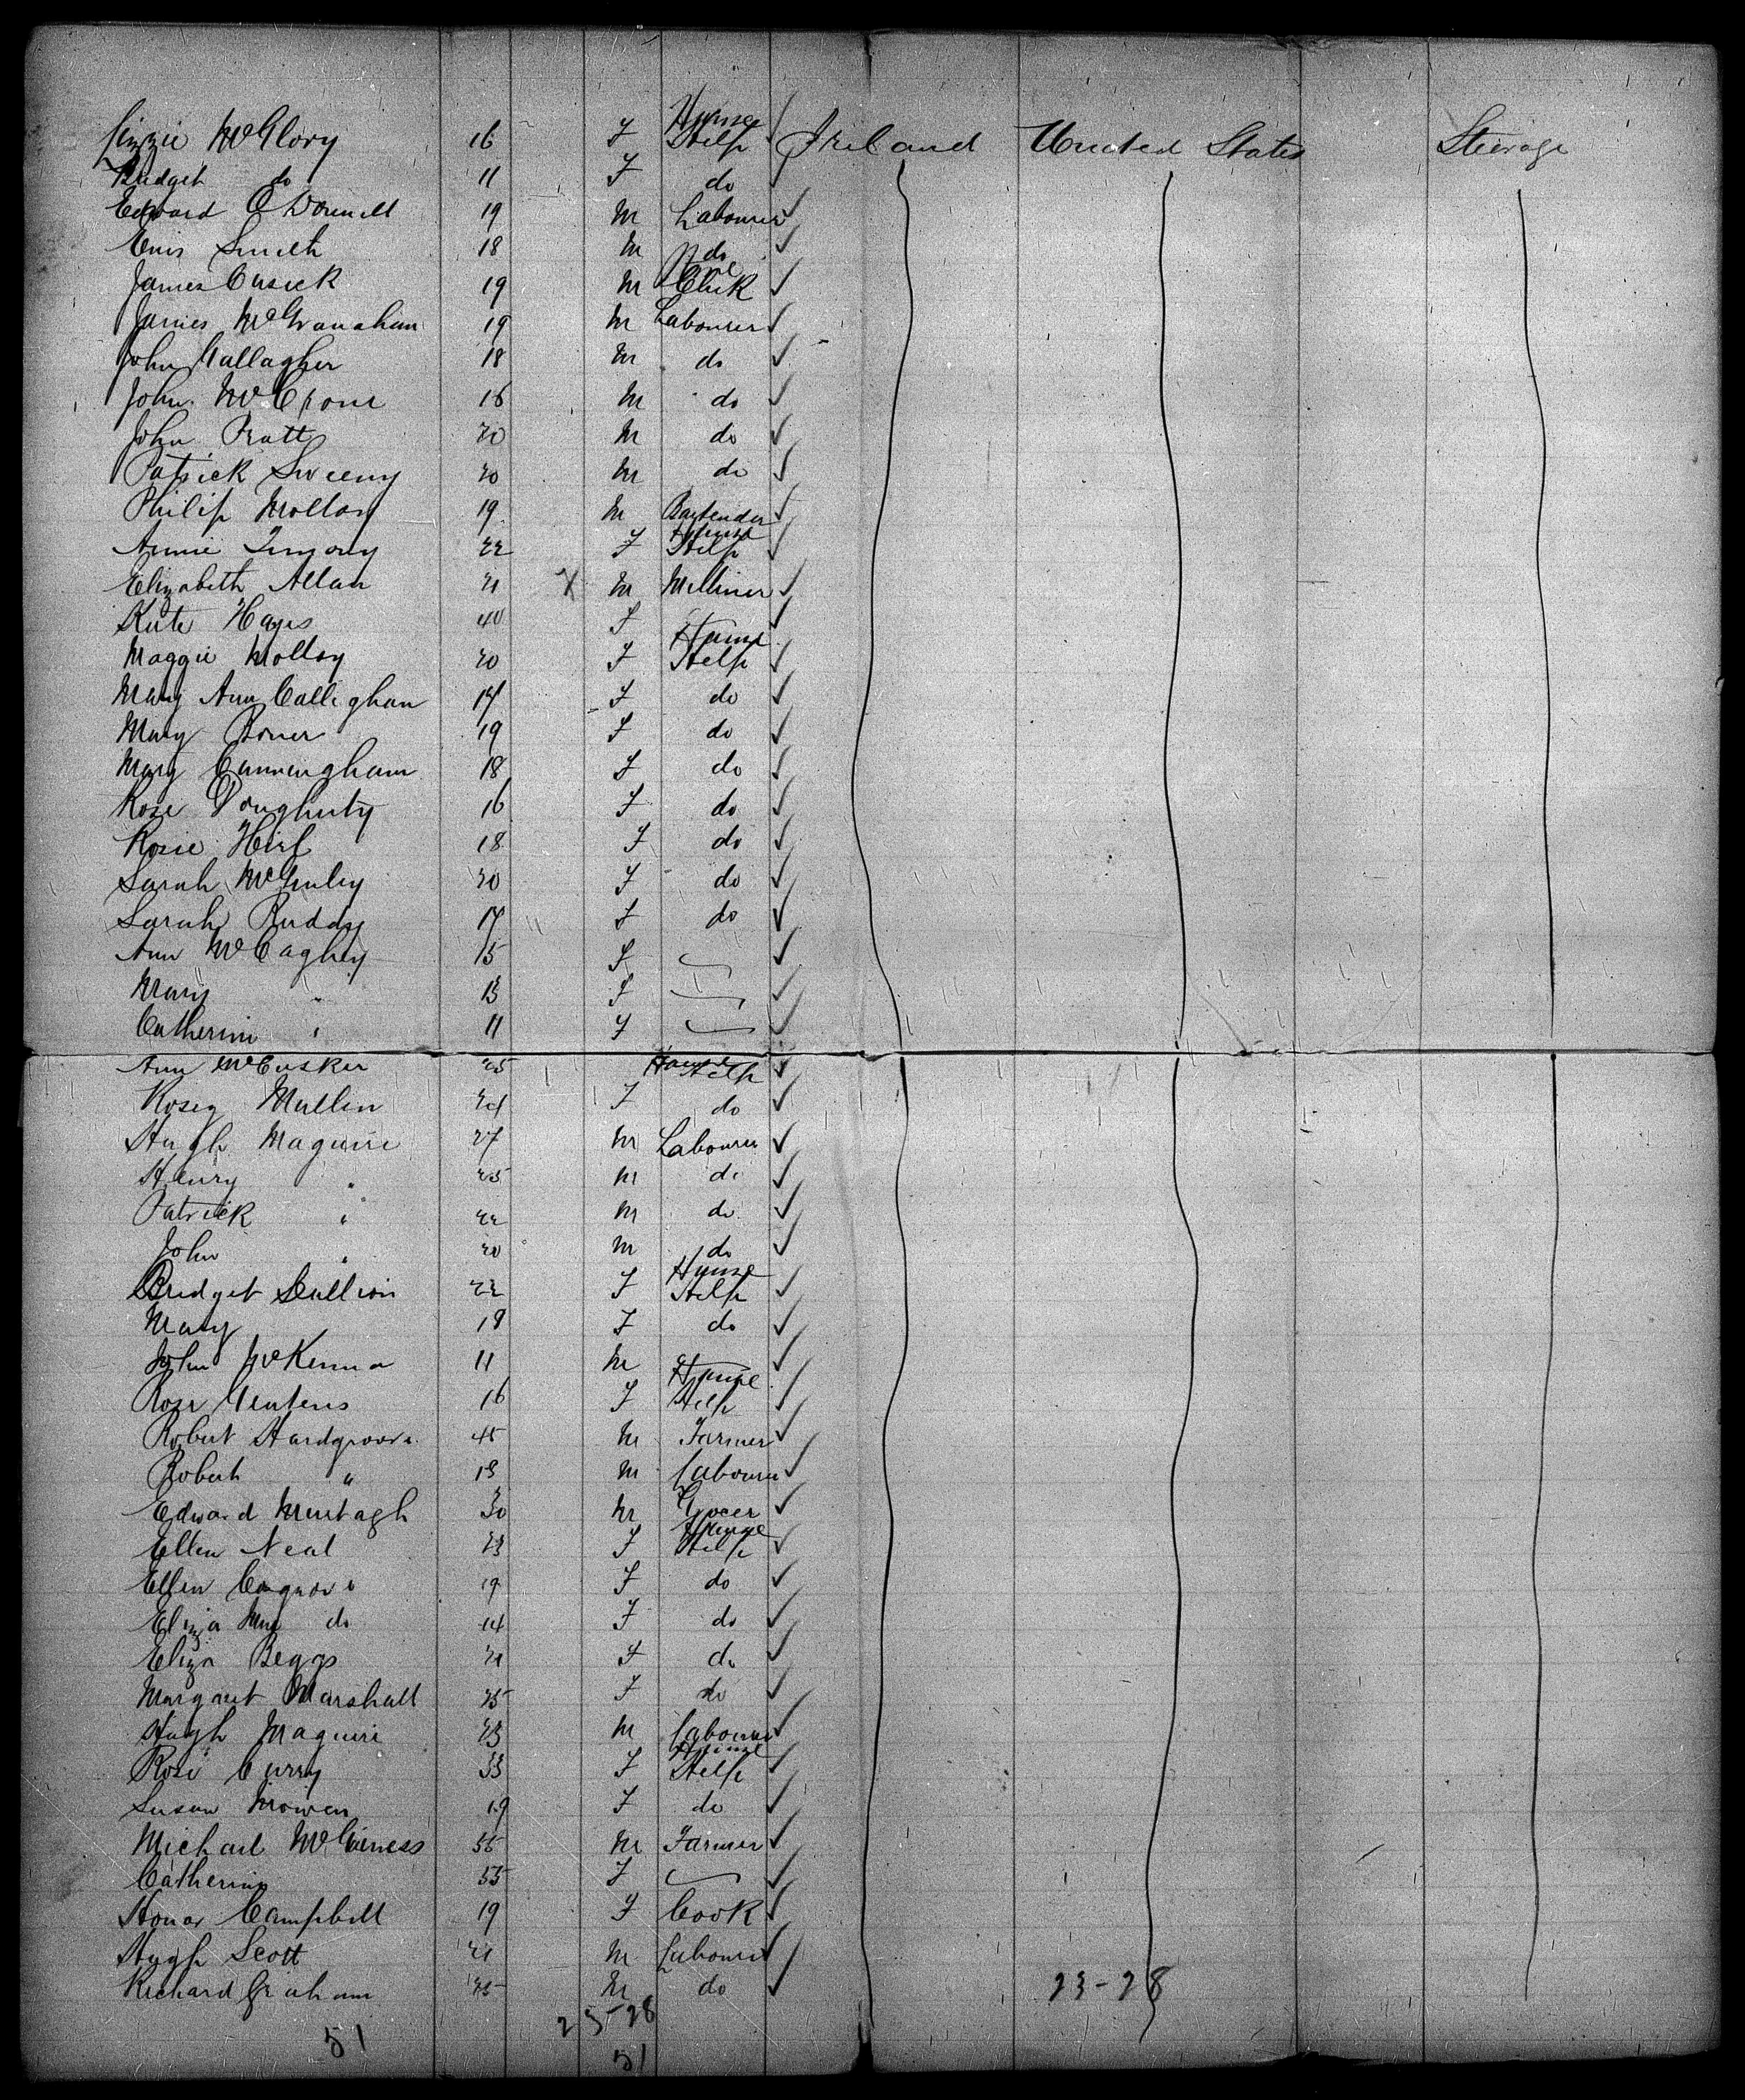 Lizzie McGlory 16 F House Help Ireland United States Steerage
Bridget do 11 F do
Edward O'Donnell 19 M Labourer
Smith 18 M do
James Cusick 19 M Clerk
James McGranahan 19 M Labourer
John Gallagher 18 M do
John McCrone 16 M do
John Pratt 20 M do
Patrick Sweeny 20 M do
Philip Molloy 19 M Bartender
Annie Timony 22 F House Help
Elizabeth Allan 21 X M Milliner
Kate Hayes 40 F
Maggie Molloy 20 F House Help
Mary Ann Callighan 17 F do
Mary Boner 19 F do
Mary Cunningham 18 F do
Rose Dougherty 16 F do
Rosie 18 F do
Sarah McGinley 20 F do
Sarah Ruddy 17 F do
Ann McCaghey 15 F
Mary " 13 F
Catherine " 11 F
Ann McCusker 25 House Help
Rosey Mullen F do
Hugh Maguire 27 M Labourer
Henry " 25 M do
Patrick " 22 M do
John " 20 M do
Bridget Scullion 22 F House Help
Mary 18 F do
John McKenna 11 M
Rose 16 F House Help
Robert Hardgroove 45 M Farmer
Robert " M Labourer
Edward Murtagh 30 M Grocer
Ellen Neal 23 F House Help
Ellen 19 F do
Eliza do 14 F do
Eliza Beggs 21 F do
Margaret Marshall 25 F do
Hugh Maguire 23 M Labourer
Rose Curry 33 F House Help
Susan 19 F do
Michael McGiness 55 M Farmer
Catherine 55 F
Honor Campbell 19 F Cook
Hugh Scott 21 M Labourer
Richard Graham 25 M do 23-28
51 23-28
51